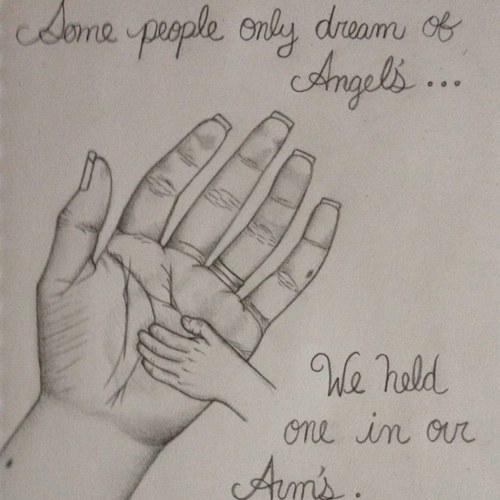 Some people only dream of
Angel's ...
We held
one in our
Arm's.